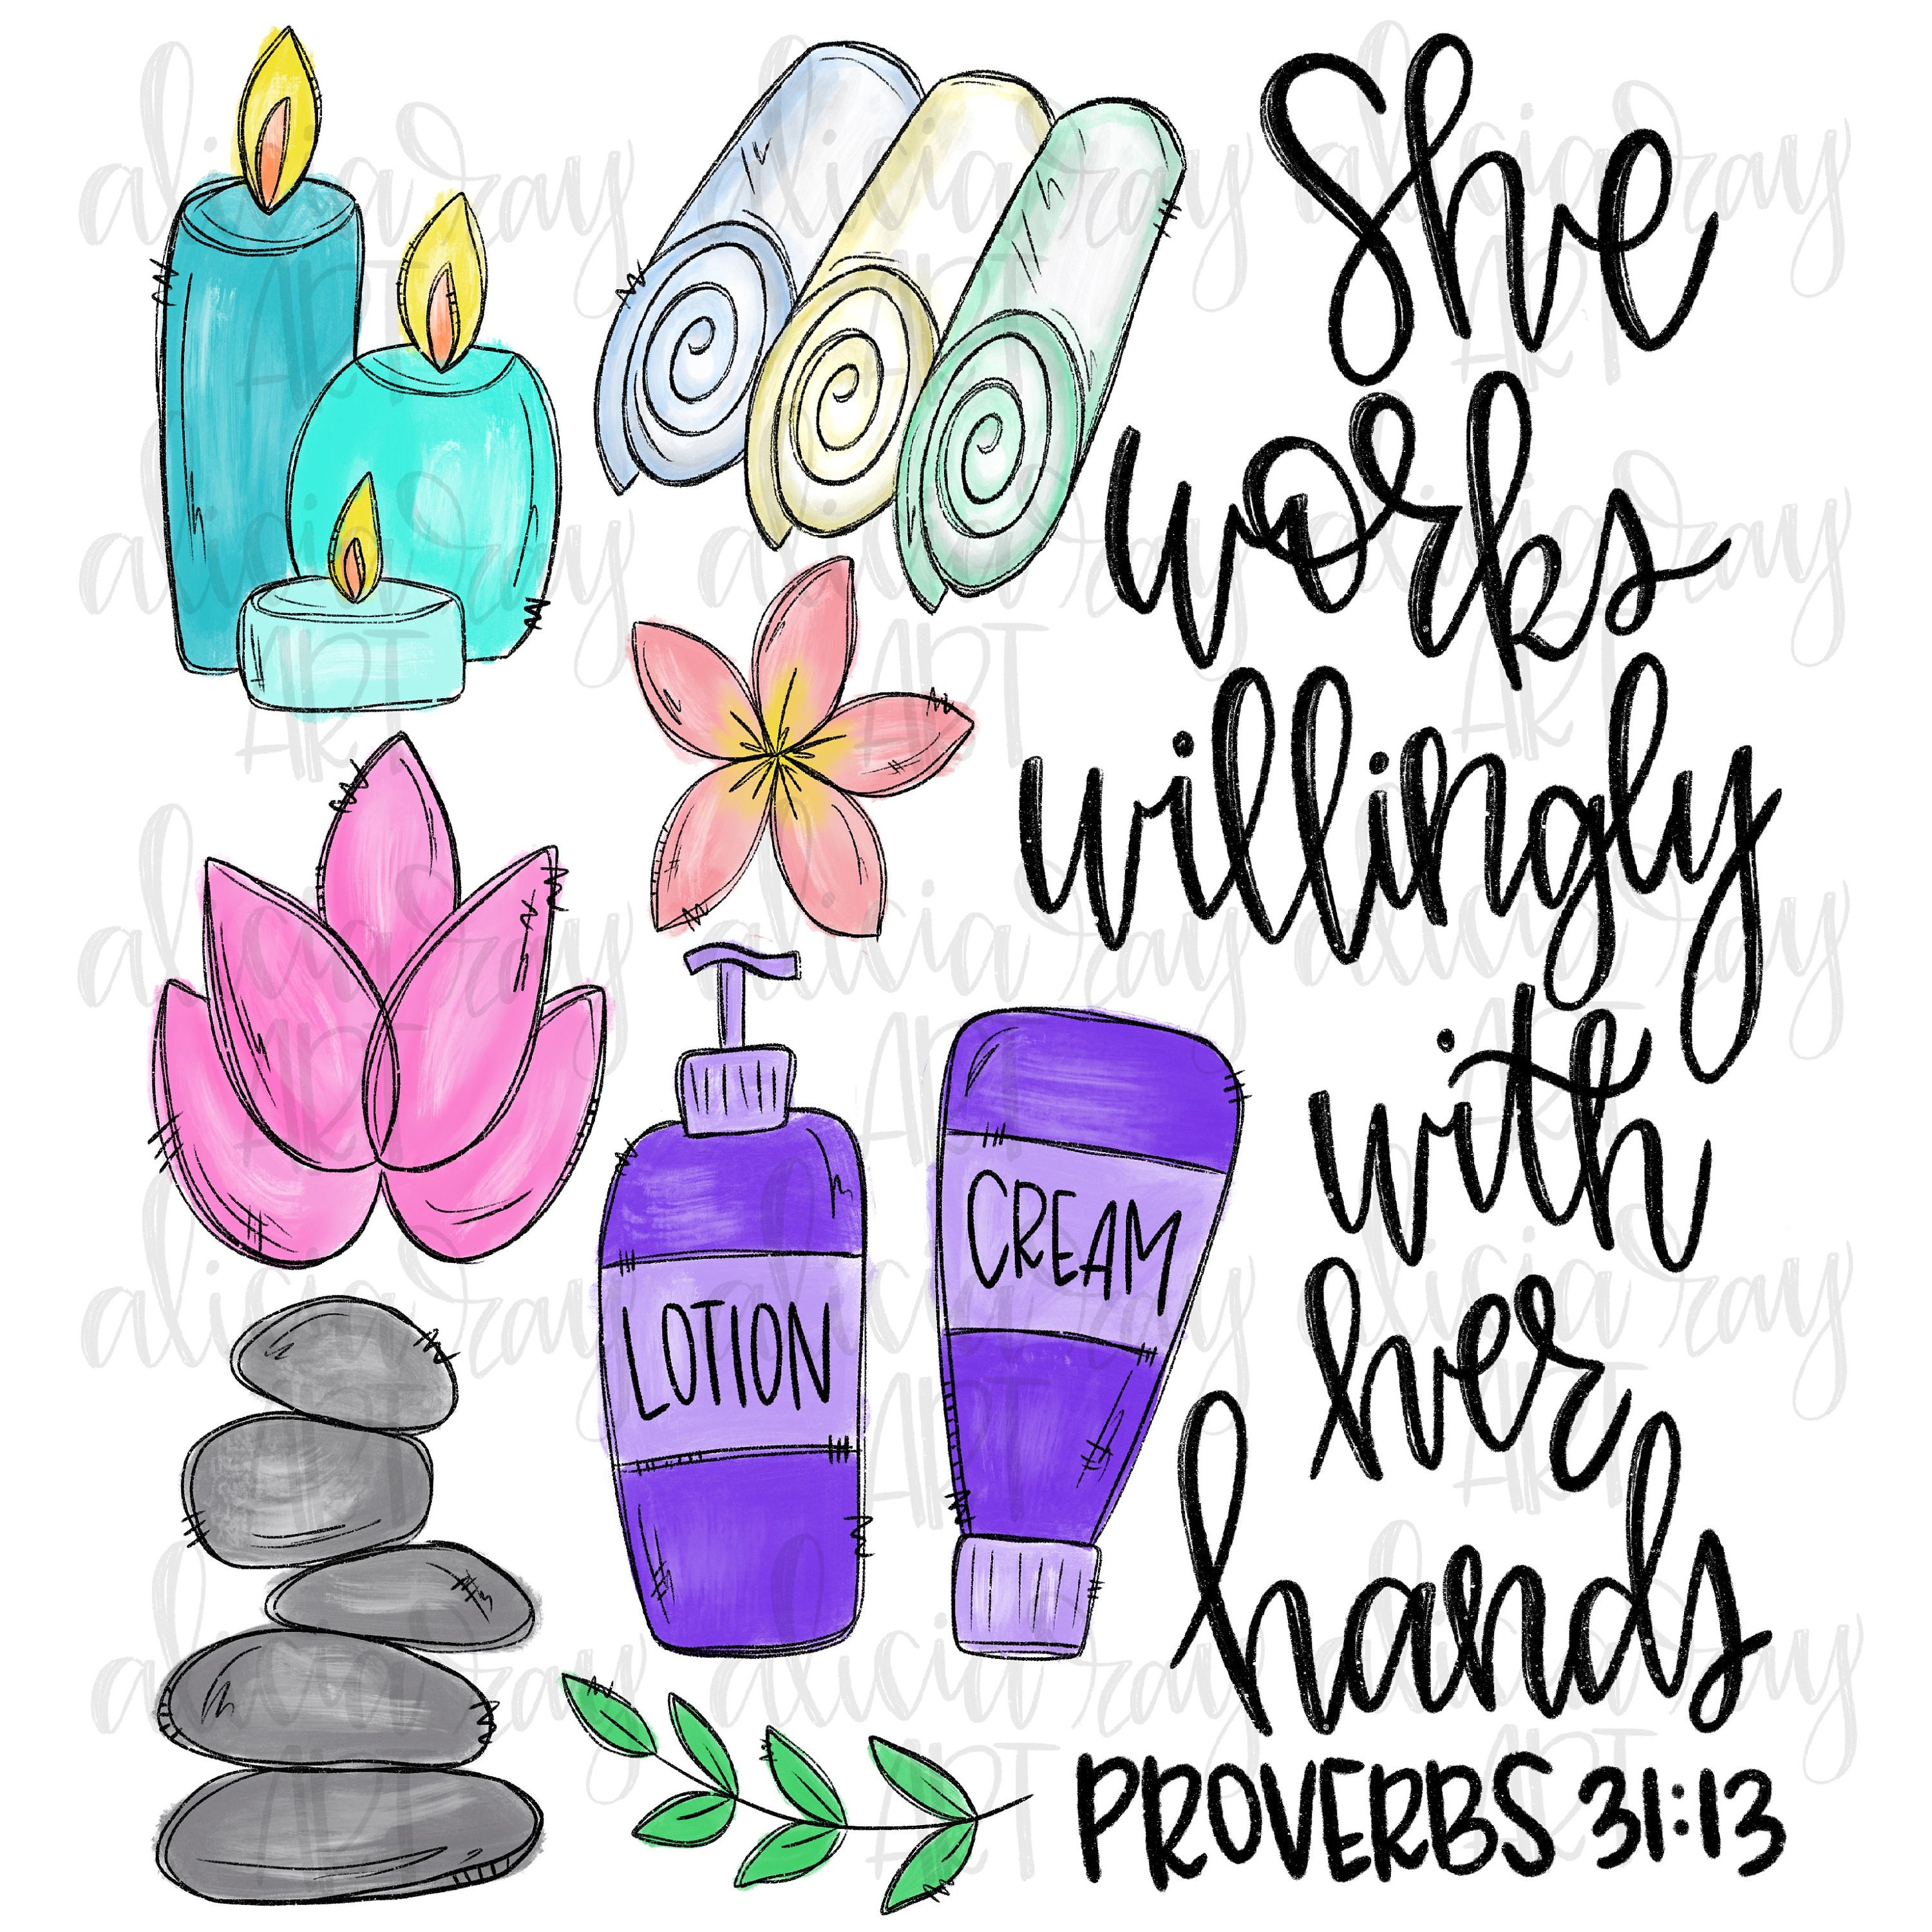 She
works
willingly
with
her
hands
PROVERBS 31:13
LOTION
CREAM
alicia ray
ART